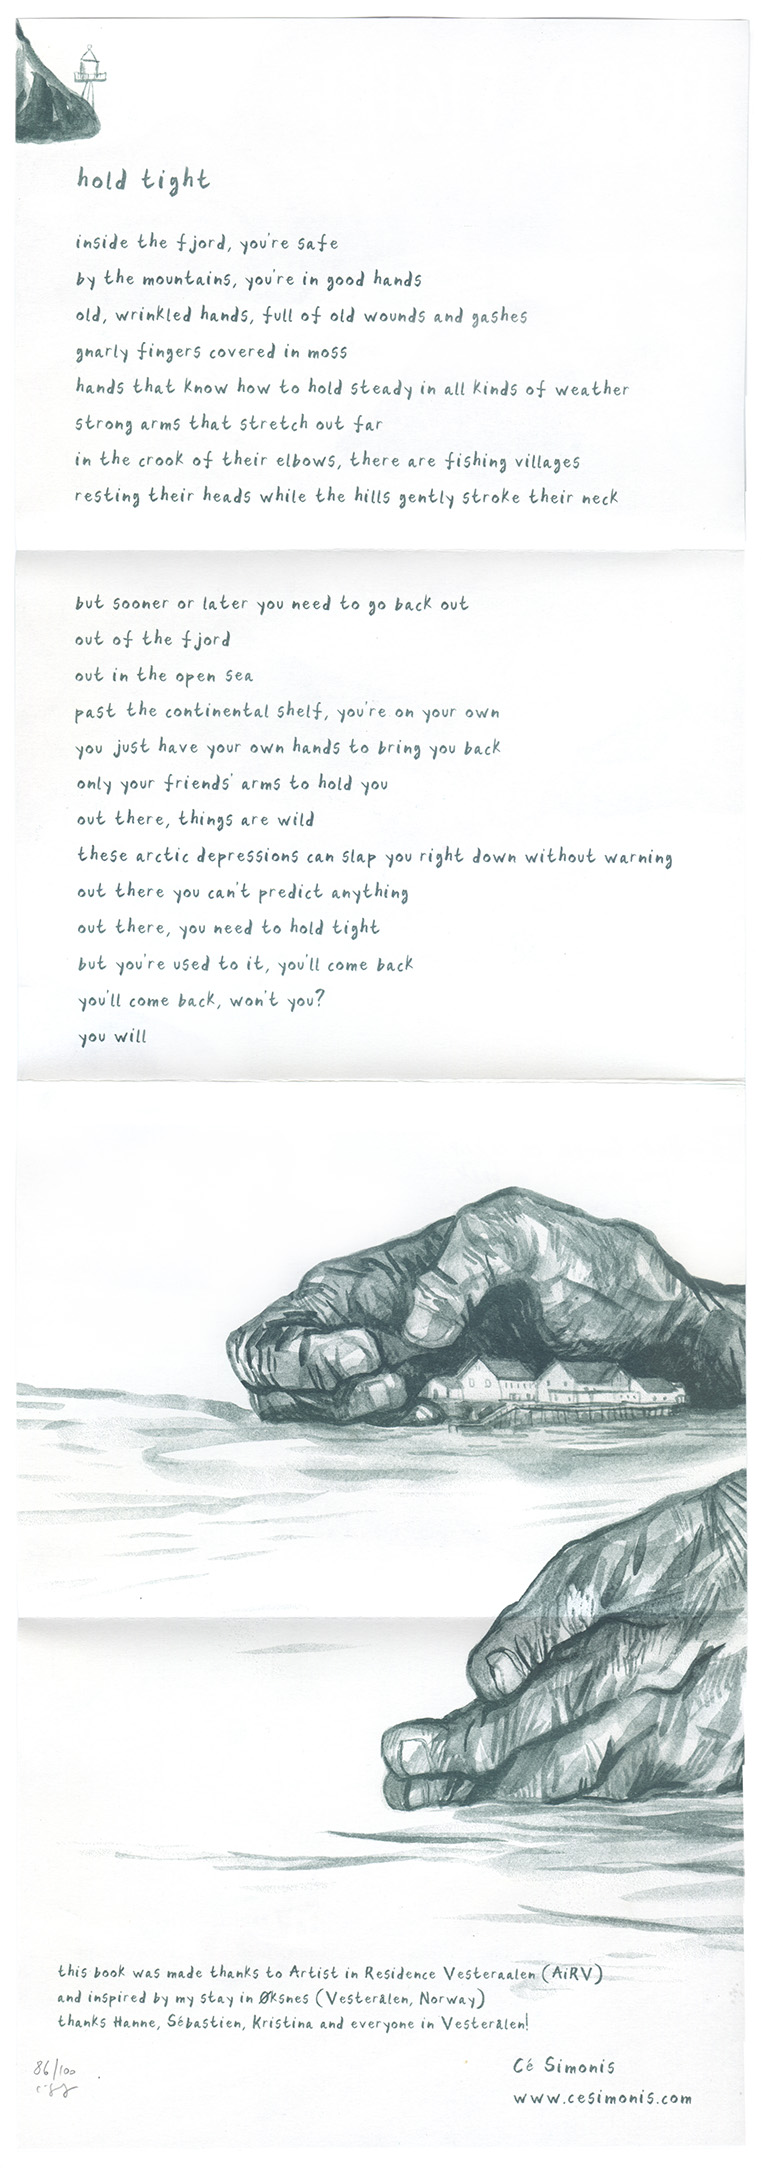 hold tight
inside the fjord, you're safe
by the mountains, you're in good hands
old, wrinkled hands, full of old wounds and gashes
gnarly fingers covered in moss
hands that know how to hold steady in all kinds of weather
strong arms that stretch out far
in the crook of their elbows, there are fishing villages
resting their heads while the hills gently stroke their neck
but sooner or later you need to go back out
out of the fjord
out in the open sea
past the continental shelf, you're on your own
you just have your own hands to bring you back
only your friends' arms to hold you
out there, things are wild
these arctic depressions can slap you right down without warning
out there you can't predict anything
out there, you need to hold tight
but you're used to it, you'll come back
you'll come back, won't you?
you will
this book was made thanks to Artist in Residence Vesteraalen (AiRV)
and inspired by my stay in Øksnes (Vesterålen, Norway)
thanks Hanne, Sébastien, Kristina and everyone in Vesterålen!
86/100
Cé Simonis
www.cesimonis.com